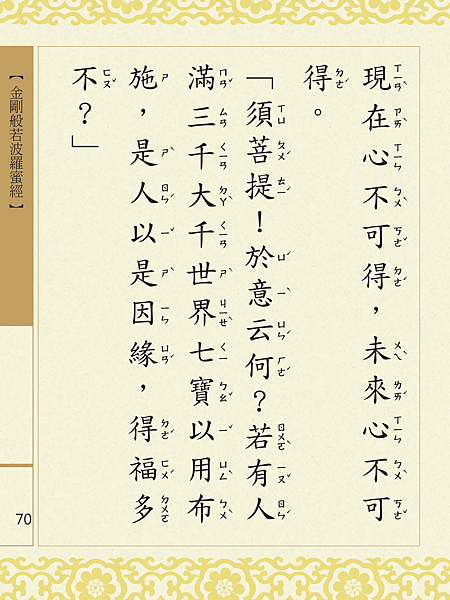 現在心不可得，未來心不可
得。
「須菩提！於意云何？若有人
滿三千大千世界七寶以用布
施，是人以是因緣，得福多
不？」
【金剛般若波羅蜜經】
70